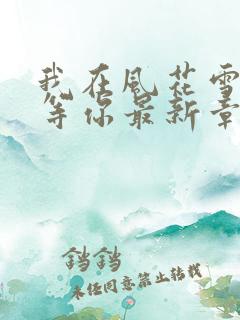 我在风花雪
等你最新章
铛铛
未经同意禁止转载